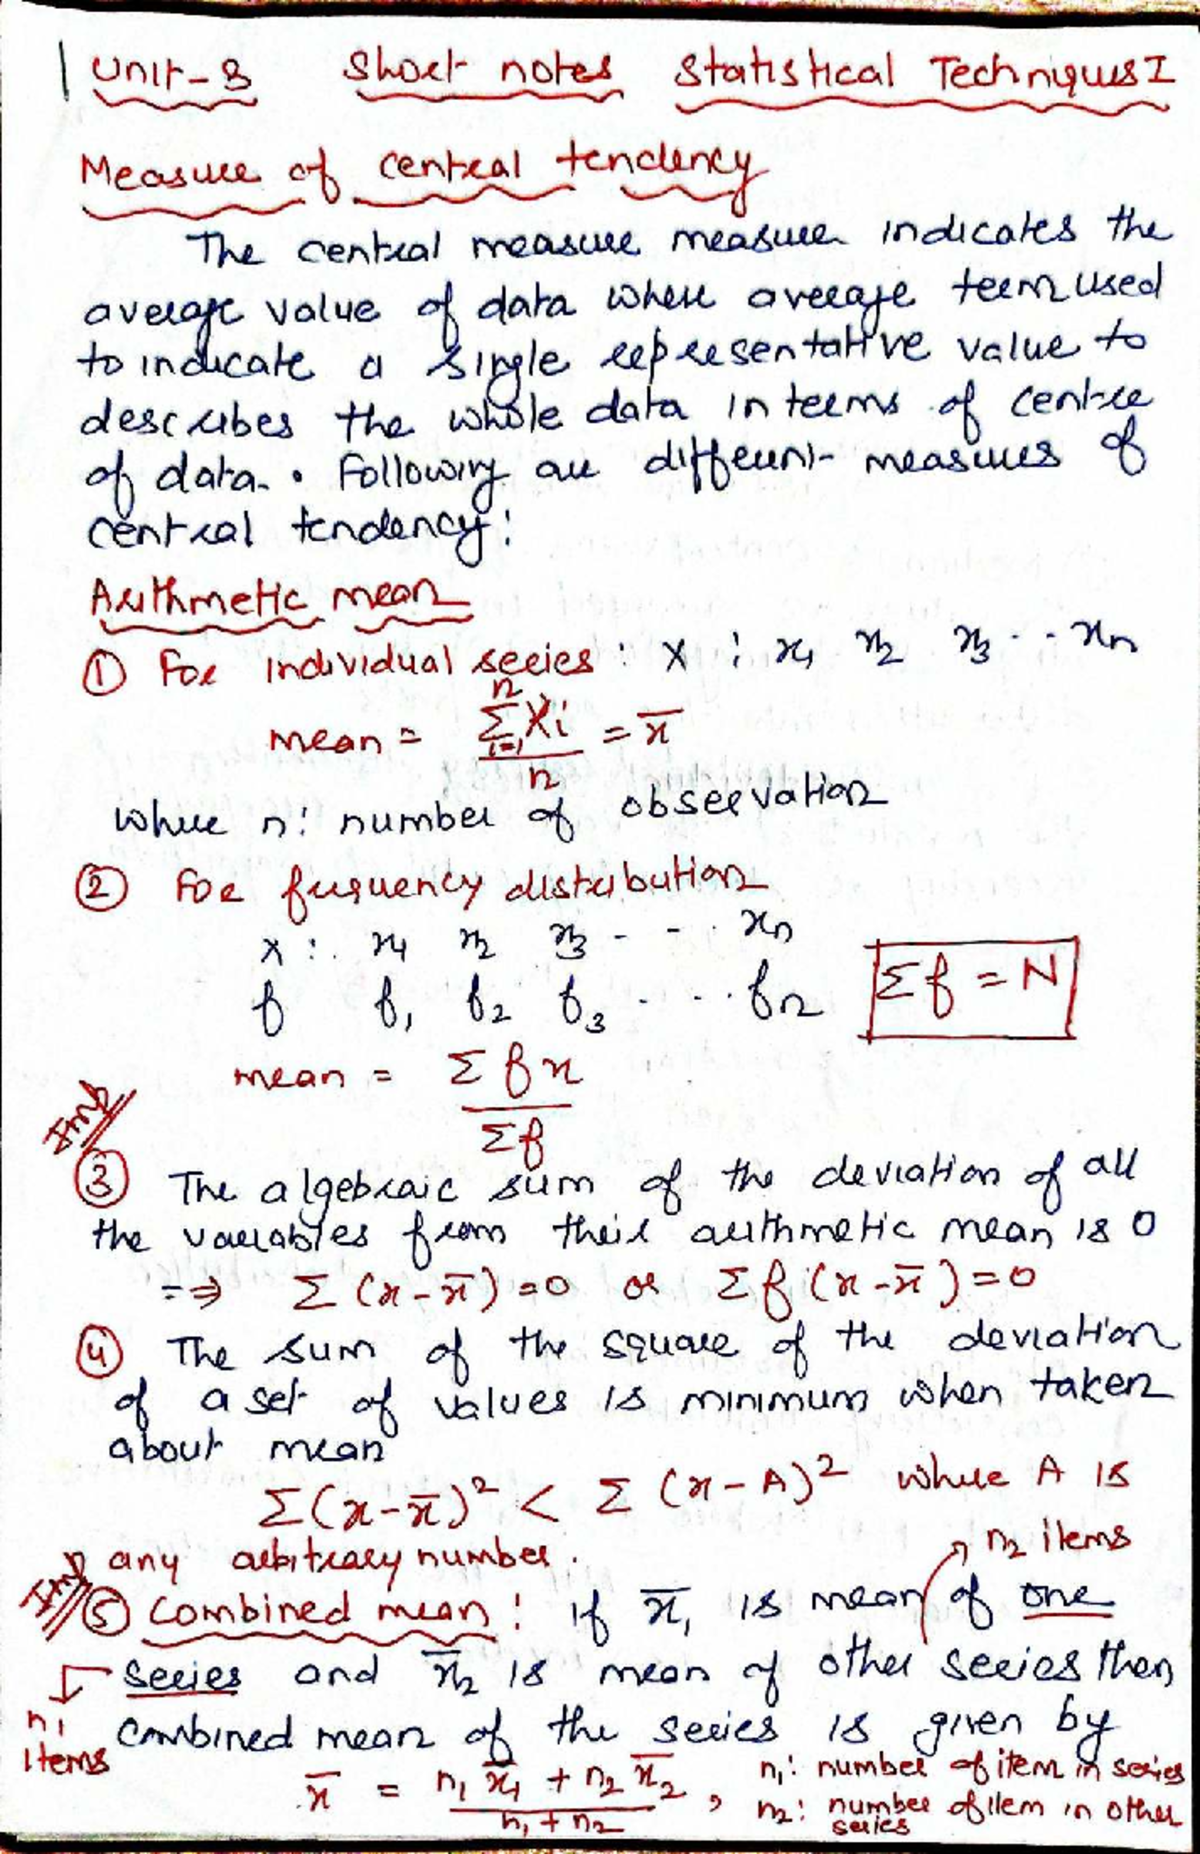 Unit-3 Short notes Statistical Techniques I
Measure of central tendency
The central measure measure indicates the
average value of data where average term used
to indicate a single representative value to
describes the whole data in terms of centre
of data. Following are different measures of
central tendency:
Arithmetic mean
① For individual series : X : x₁ x₂ x₃ .. xₙ
mean = \frac{\sum_{i=1}^{n} Xi}{n} = x̄
where n: number of observation
② For frequency distribution
X : x₁ x₂ x₃ - - . xₙ
f f₁ f₂ f₃ . - . . fn
Σf = N
mean = \frac{Σfx}{Σf}
Imp
③ The algebraic sum of the deviation of all
the variables from their arithmetic mean is 0
=⇒ Σ(x-x̄)=0 or Σf(x-x̄)=0
④ The sum of the square of the deviation
of a set of values is minimum when taken
about mean
Σ(x-x̄)² < Σ(x-A)² where A is
any arbitrary number.
n₂ items
Imp
⑤ Combined mean: if x̄₁ is mean of one
series and x̄₂ is mean of other series then
n₁ items
combined mean of the series is given by
x̄ = \frac{n₁x̄₁ + n₂x̄₂}{n₁+n₂},
n₁: number of item in series
n₂: number of item in other
series